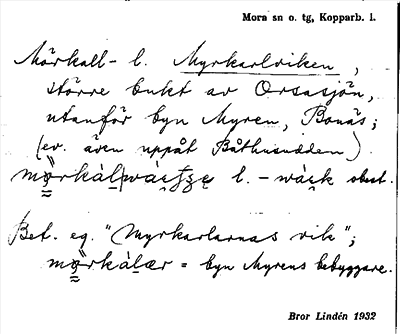 Mora sn o. tg, Kopparb. l.
Mörkall- l. Myrkarlviken,
större bukt av Orsasjön,
utanför byn Myren, Bonäs;
(ev. även uppåt Båthusudden).
l. -
Bet. eg. "Myrkarlarnas vik";
= byn Myrens bebyggare.
Bror Lindén 1932